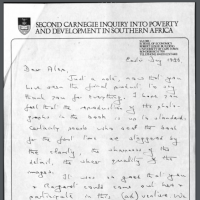 SECOND CARNEGIE INQUIRY INTO POVERTY
AND DEVELOPMENT IN SOUTHERN AFRICA
SCHOOL OF ECONOMICS
Dear Alex,
Just a note, now that you
have seen the final product, to say
thank you for everything. I hope you
feel that the reproduction of the photo-
graphs in the book is up to standard.
Certainly people who see the book
for the first time are staggered by
the clarity, the
detail, the sheer quality of the
images.
It was so great that you
+ could come out here +
participate in this (ad)venture. We